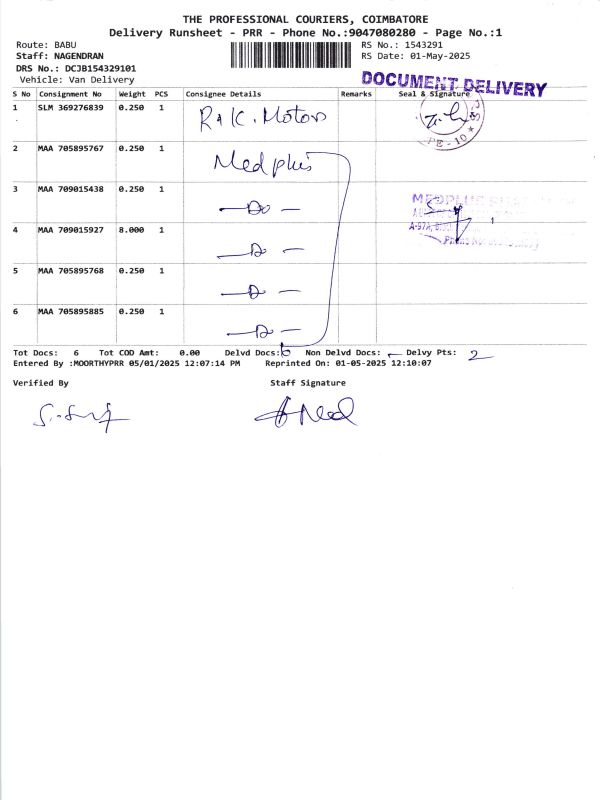 THE PROFESSIONAL COURIERS, COIMBATORE
Delivery Runsheet - PRR - Phone No.:9047080280 - Page No.:1
Route: BABU
Staff: NAGENDRAN
DRS No.: DCJB154329101
Vehicle: Van Delivery
RS No.: 1543291
RS Date: 01-May-2025
DOCUMENT DELIVERY
S No Consignment No Weight PCS Consignee Details Remarks Seal & Signature
1 SLM 369276839 0.250 1 R & K. Motors
PE - 10
2 MAA 705895767 0.250 1 Medplus
3 MAA 709015438 0.250 1 — Do —
MEDPLUS
4 MAA 709015927 8.000 1 — Do —
5 MAA 705895768 0.250 1 — Do —
6 MAA 705895885 0.250 1 — Do —
Tot Docs: 6 Tot COD Amt: 0.00 Delvd Docs: 6 Non Delvd Docs: — Delvy Pts: 2
Entered By :MOORTHYPRR 05/01/2025 12:07:14 PM Reprinted On: 01-05-2025 12:10:07
Verified By Staff Signature